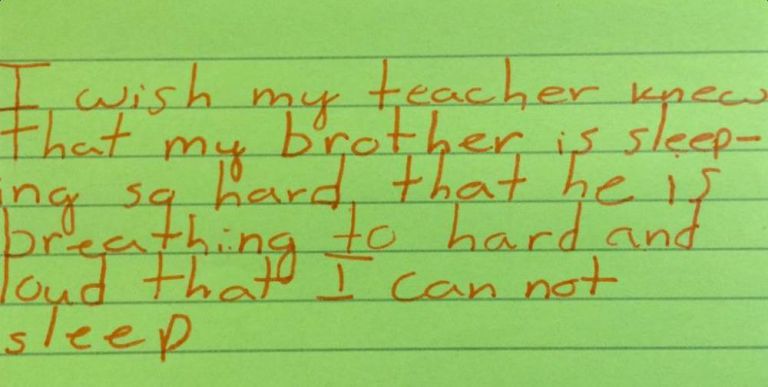 I wish my teacher knew
that my brother is sleep-
ing so hard, that he is
breathing to hard and
loud that I can not
sleep